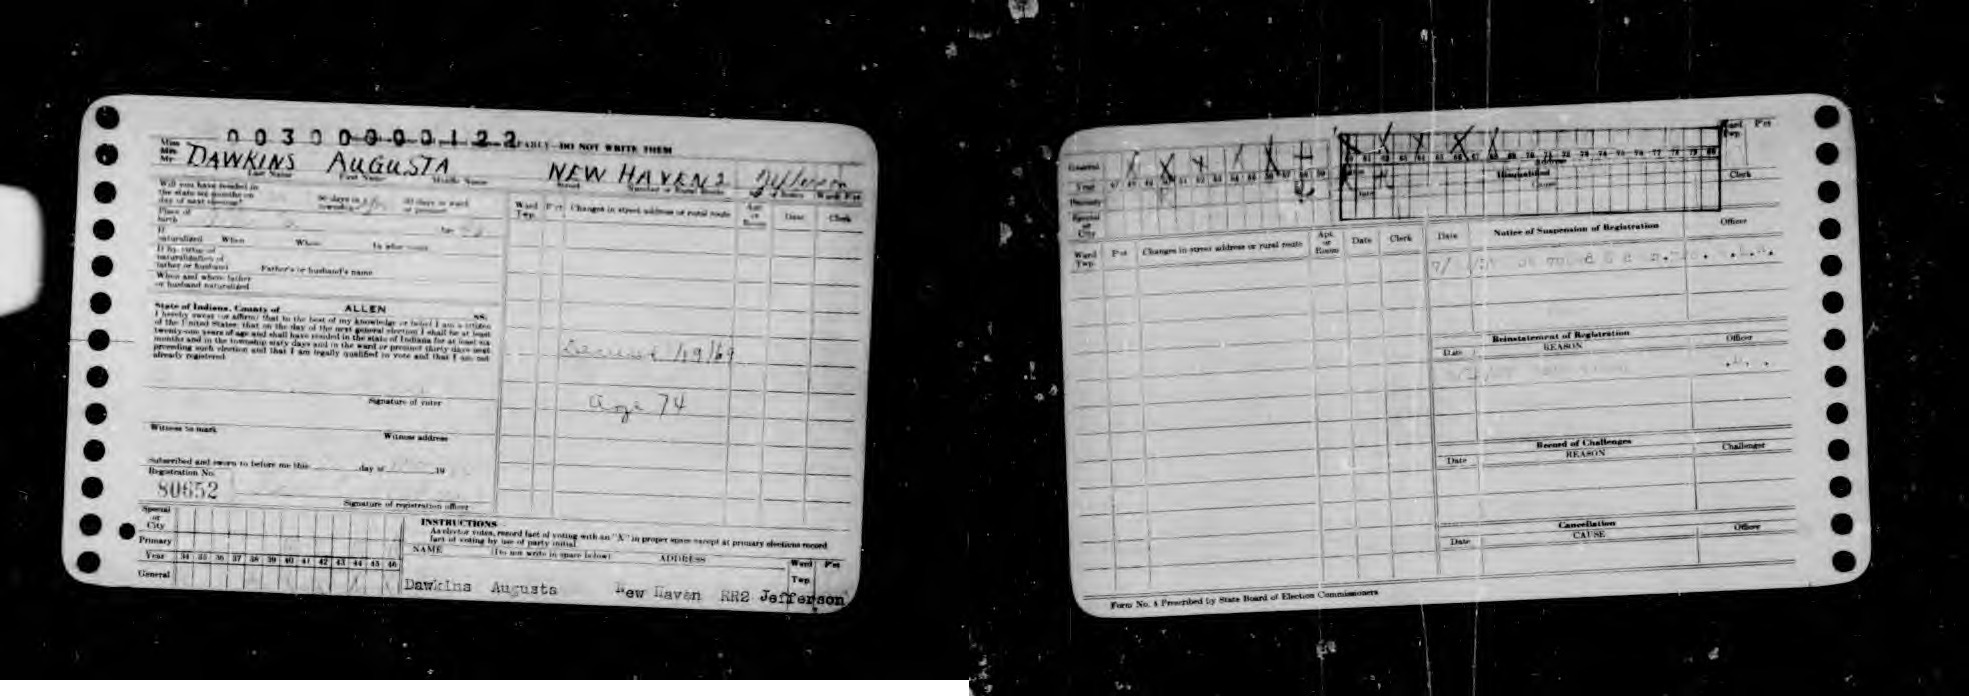 003 00000122
EARLY DO NOT WRITE THEM
Miss
Mrs.
Mr. DAWKINS AUGUSTA NEW HAVEN 2 Jefferson
Last Name First Name Middle Name Street Number or Rural Route Ward Pct
Will you have resided in
the state six months on
day of next election? 60 days in township 30 days in ward or precinct
Place of
birth
If
naturalized When Where In what court
If by virtue of
naturalization of
father or husband Father's or husband's name
When and where father
or husband naturalized
State of Indiana, County of ALLEN ss.
I hereby swear (or affirm) that to the best of my knowledge or belief I am a citizen
of the United States; that on the day of the next general election I shall be at least
twenty-one years of age and shall have resided in the state of Indiana for at least six
months and in the township sixty days and in the ward or precinct thirty days next
preceding such election and that I am legally qualified to vote and that I am not
already registered.
Signature of voter
Witness to mark Witness address
Subscribed and sworn to before me this day of 19
Registration No.
80652
Signature of registration officer
Ward Twp. Pct Changes in street address or rural route Apt. or Room Date Clerk
Deceased 1/19/69
Age 74
Special
or
City
Primary
Year 34 35 36 37 38 39 40 41 42 43 44 45 46
General
INSTRUCTIONS
As elector votes, record fact of voting with an "X" in proper space except at primary elections record
fact of voting by use of party initial.
NAME (Do not write in space below) ADDRESS Ward Twp. Pct
Dawkins Augusta New Haven RR2 Jefferson
General
Year 47 48 49 50 51 52 53 54 55 56 57 58 59 60 61 62 63 64 65 66 67 68 69 70 71 72 73 74 75 76 77 78 79 80
Primary
Special
or
City
Ward Twp. Pct
Clerk
Ward Twp. Pct Changes in street address or rural route Apt. or Room Date Clerk
Date Notice of Suspension of Registration Officer
Reinstatement of Registration
Date REASON Officer
Record of Challenges
Date REASON Challenger
Cancellation
Date CAUSE Officer
Form No. 8 Prescribed by State Board of Election Commissioners